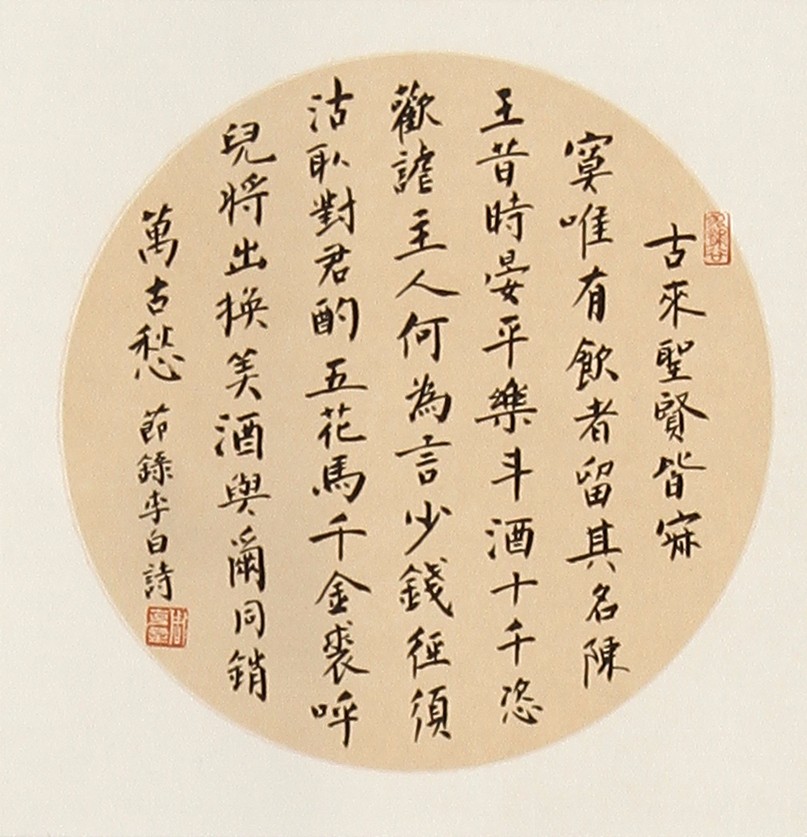 古來聖賢皆寂
寞唯有飲者留其名陳
王昔時宴平樂斗酒十千恣
歡謔主人何為言少錢徑須
沽取對君酌五花馬千金裘呼
兒將出換美酒與爾同銷
萬古愁 節錄李白詩